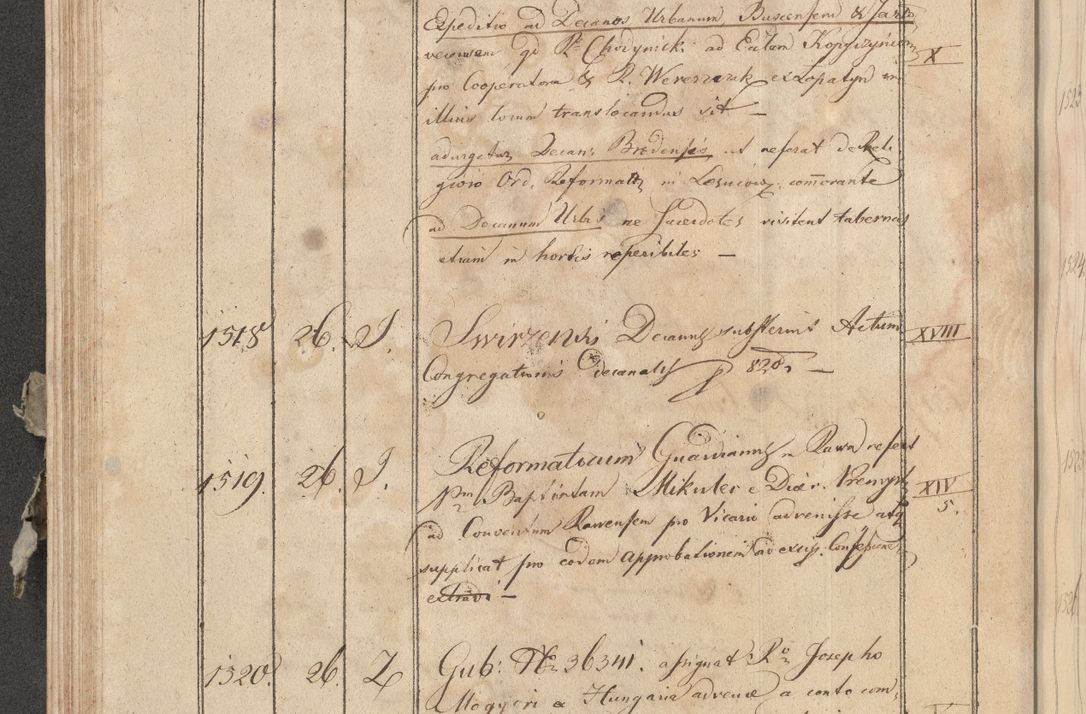 Expeditio ad Decanos Urbanum, Buscensem & Jaryo
vecensem qd Rs Chodynicki ad Eccam Kopyczyniem X
pro Cooperatore & R. Wereszczak ex Lopatyn in
illius locum translocandus sit —
adurgetur Decans Brodensis ut referat de Reli
gioso Ord. Reformator in Lesniow commorante
ad Decanum Urbis ne Sacerdotes visitent tabernas
etiam in hortis reperibiles —
1518 26. J. Swirzensis Decanus substernit Actum XVIII
Congregationis decanalis p 820 —
1519. 26. J. Reformatorum Guardianus in Rawa refert XIV
Pm Baptistam Mikuler e Dioec. Premysl 5.
ad Conventum Rawensem pro Vicario advenisse atq
supplicat pro eodem approbationem ad excip. Confessiones
1520. 26. Z Gub: Nr 36341. assignat Ro Josepho
Mogyeri e Hungaria advenae a conto com